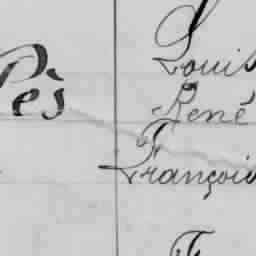 Louis
Pès
René
François